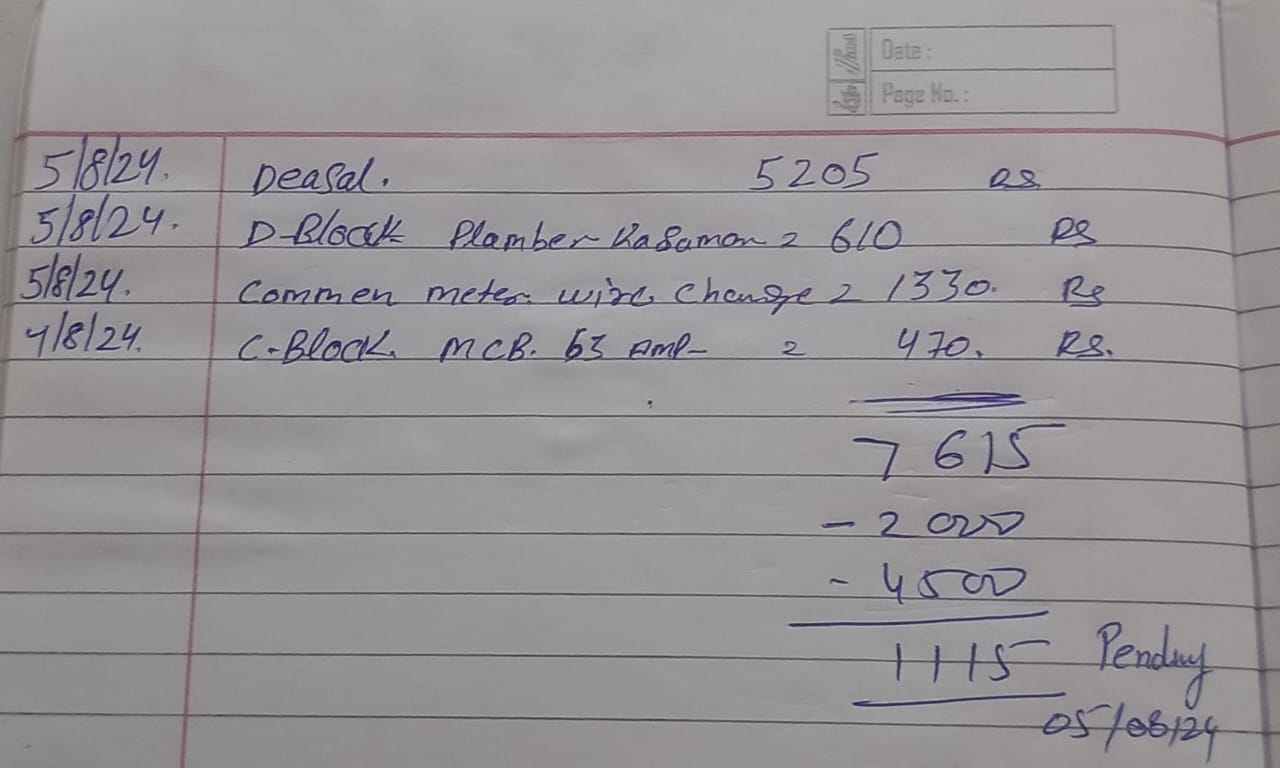 Date :
Page No. :
5/8/24. Deasal. 5205 RS
5/8/24. D-Block Plamber Kasaman = 610 RS
5/8/24. Commen meter wire Change = 1330. Rs
4/8/24. C-Block. MCB. 63 Amp- = 470. RS.
7615
- 2000
- 4500
1115 Pending
05/08/24